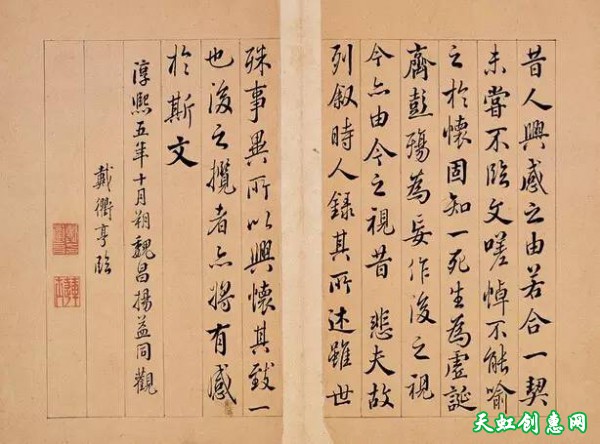 昔人興感之由若合一契
未嘗不臨文嗟悼不能喻
之於懷固知一死生為虛誕
齊彭殤為妄作後之視
今亦由今之視昔 悲夫故
列叙時人錄其所述雖世
殊事異所以興懷其致一
也後之攬者亦將有感
於斯文
淳熙五年十月朔魏昌揚益同觀
戴衢亨臨
天虹创惠网